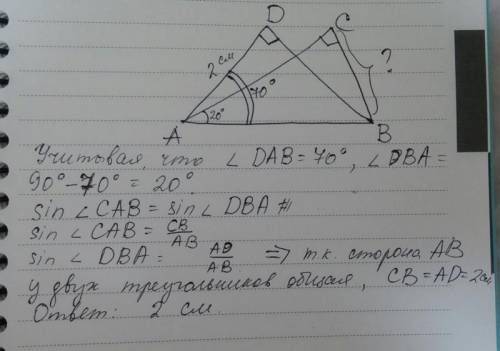 D C
2 см ?
70°
20°
A B
Учитовая, что ∠ DAB = 70°, ∠ DBA =
90° - 70° = 20°.
sin ∠ CAB = sin ∠ DBA
sin ∠ CAB = CB/AB
sin ∠ DBA = AD/AB => т.к. сторона AB
у двух треугольников общая, CB = AD = 2см
Ответ: 2 см.